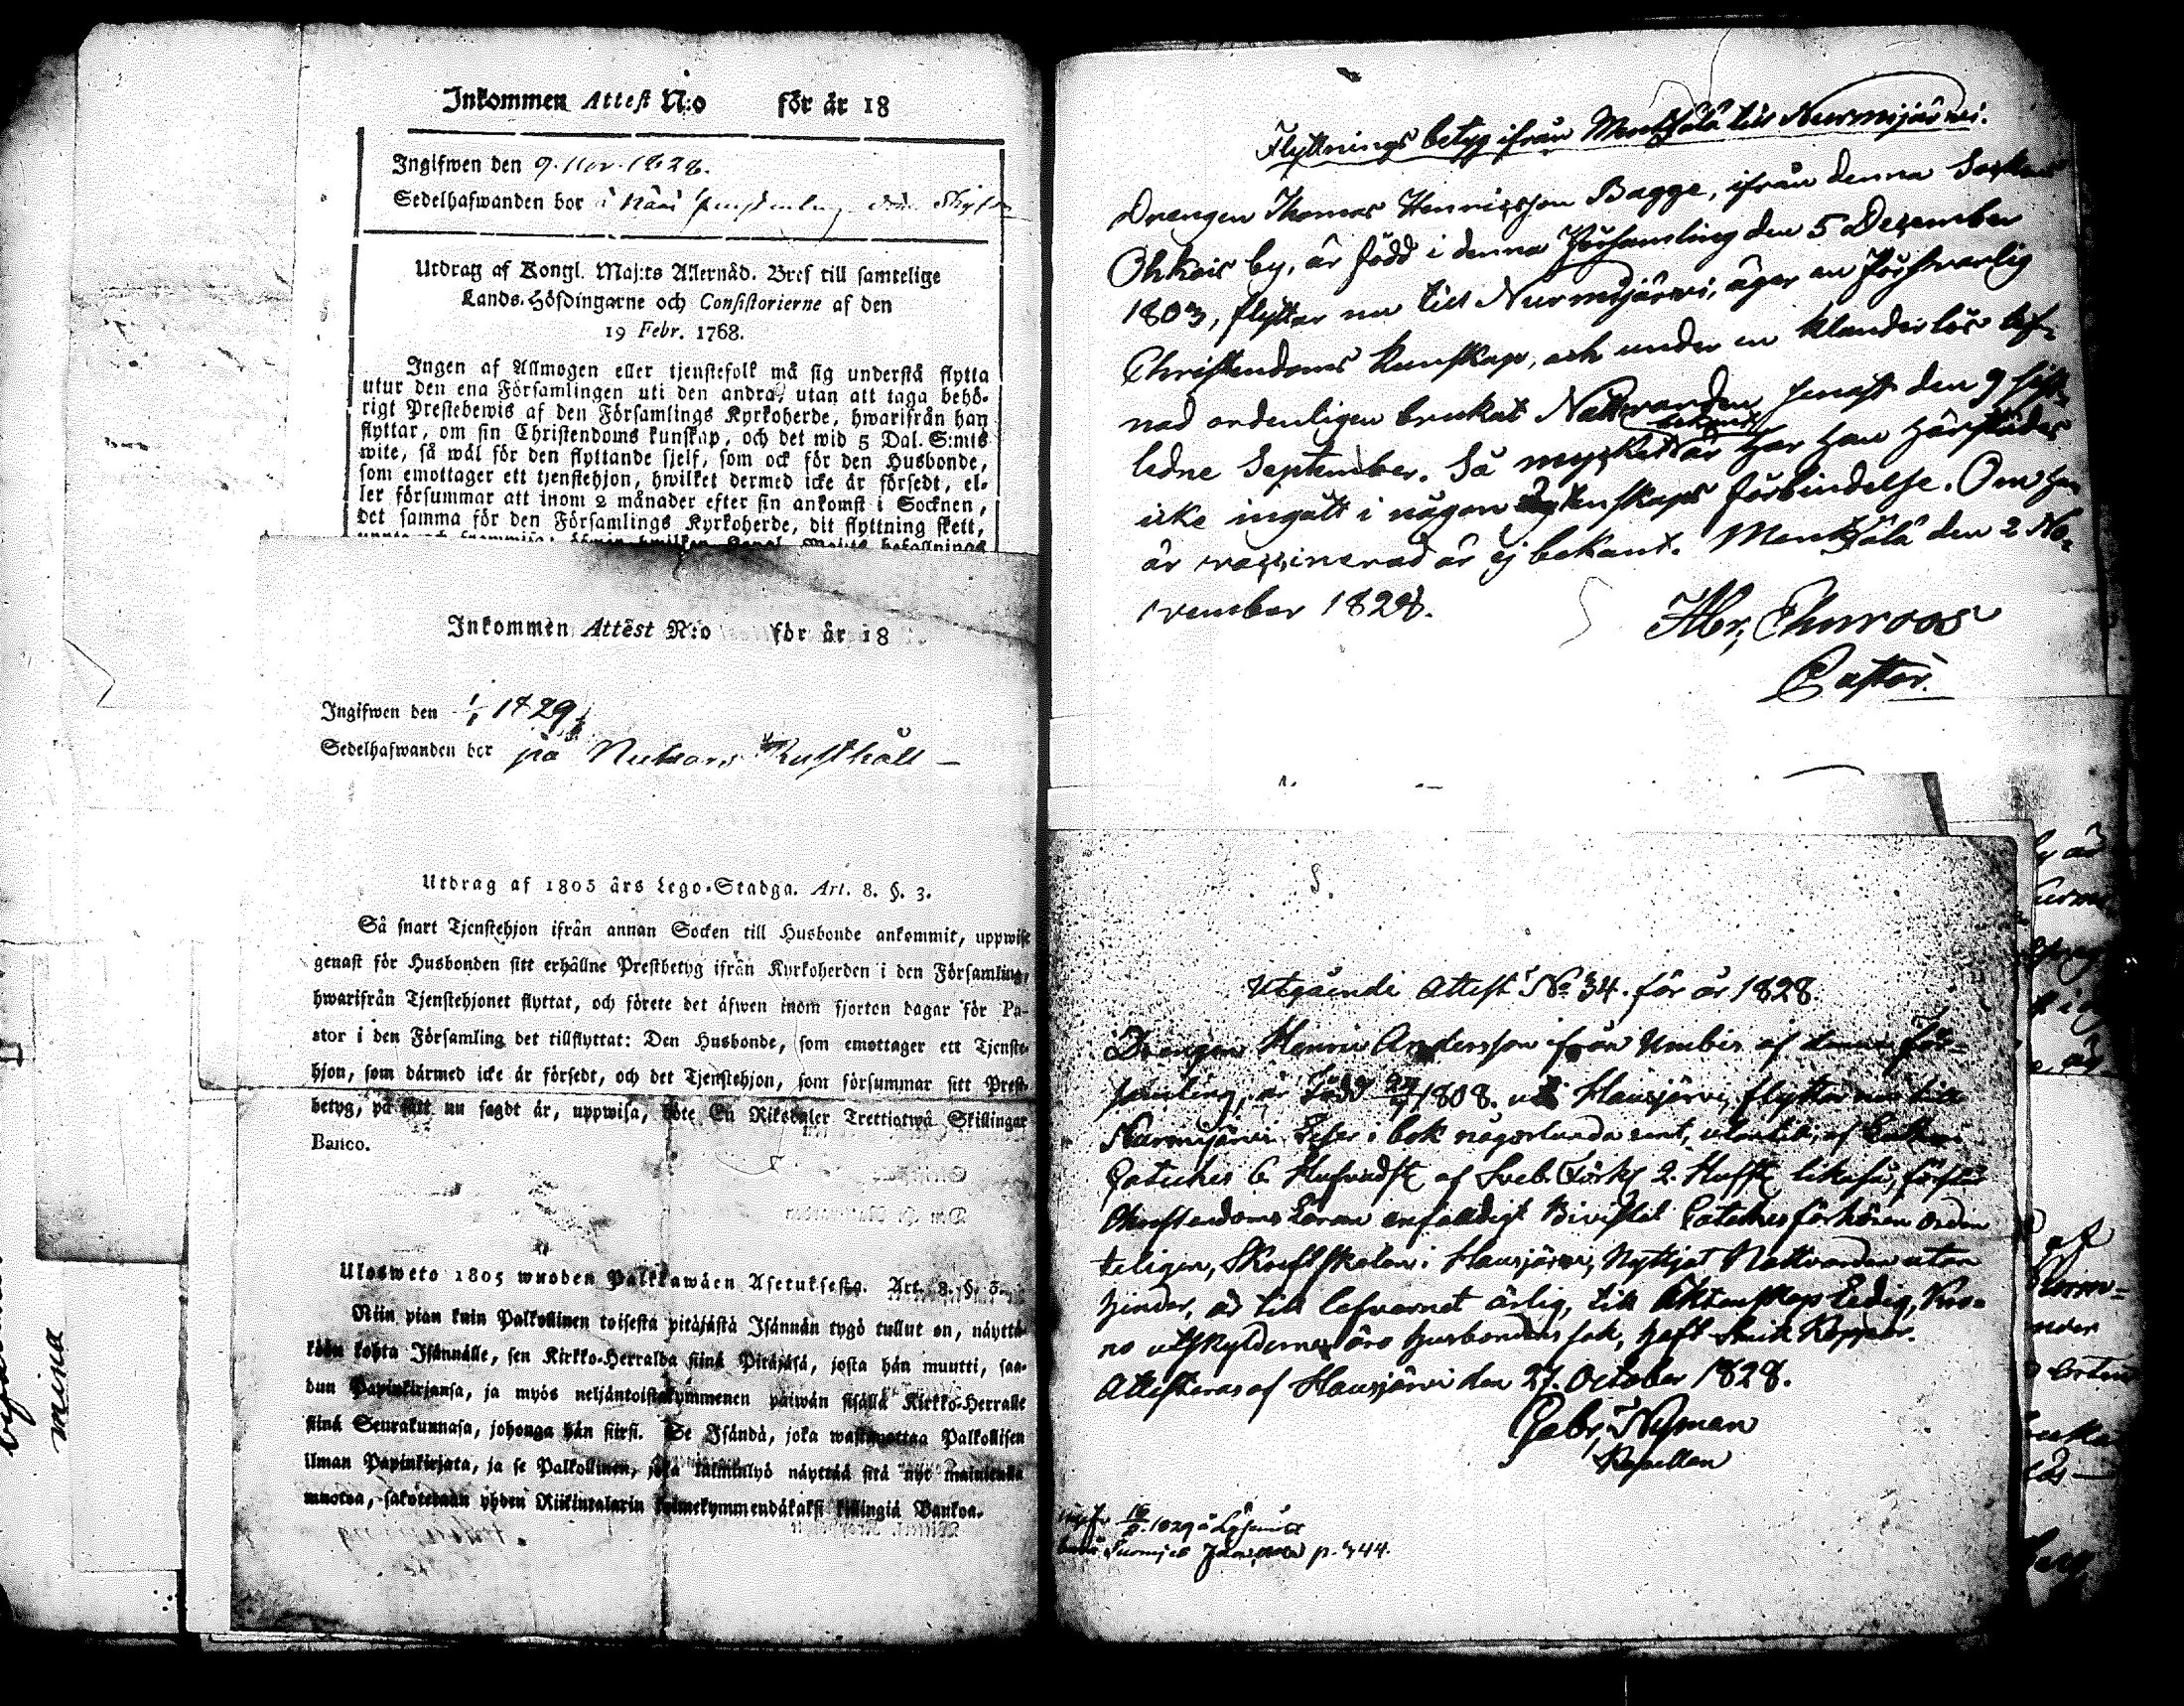 Inkommen Attest N:o för år 18
Ingifwen den 9. Nov. 1828.
Sedelhafwanden bor i
Utdrag af Kongl. Maj:ts Allernåd. Bref till samtelige
Lands-Höfdingarne och Consistorierne af den
19 Febr. 1768.
Ingen af Allmogen eller tjenstefolk må sig understå flytta
utur den ena Församlingen uti den andra, utan att taga behö-
rigt Prestebewis af den Församlings Kyrkoherde, hwarifrån han
flyttar, om sin Christendoms kunskap, och det wid 5 Dal. S:mts
wite, så wäl för den flyttande sjelf, som ock för den Husbonde,
som emottager ett tjenstehjon, hwilket dermed icke är försedt, el-
ler försummar att inom 2 månader efter sin ankomst i Socknen,
det samma för den Församlings Kyrkoherde, dit flyttning skett,
Inkommen Attest N:o för år 18
Ingifwen den 1/1 1829
Sedelhafwanden bor på Rusthåll
Utdrag af 1805 års Lego-Stadga. Art. 8. §. 3.
Så snart Tjenstehjon ifrån annan Socken till Husbonde ankommit, uppwise
genast för Husbonden sitt erhållne Prestbetyg ifrån Kyrkoherden i den Församling,
hwarifrån Tjenstehjonet flyttat, och förete det äfwen inom fjorton dagar för Pa-
stor i den Församling det tillflyttat: Den Husbonde, som emottager ett Tjenste-
hjon, som därmed icke är försedt, och det Tjenstehjon, som försummar sitt Prest-
betyg, på sätt nu sagdt är, uppwisa, böte En Riksdaler Trettiotwå Skillingar
Banco.
Ulosweto 1805 wuoden Palkkawäen Asetuksesta. Art. 8. §. 3.
Niin pian kuin Palkollinen toisesta pitäjästä Isännän tygö tullut on, näyttä-
köön kohta Isännälle, sen Kirkko-Herralda siinä Pitäjäsä, josta hän muutti, saa-
dun Papinkirjansa, ja myös neljäntoistakymmenen päiwän sisällä Kirkko-Herralle
siinä Seurakunnasa, johonga hän siirsi. Se Isändä, joka wastanottaa Palkollisen
ilman Papinkirjata, ja se Palkollinen, joka laiminlyö näyttää sitä nyt mainitulla
muotoa, sakotetaan yhden Riikintalarin kolmekymmendäkaksi killingiä Bankoa.
Flyttnings betyg ifrån Mentzälä till Nurmijärvi.
Drengen Thomas Henricsson Bagge, ifrån denna Sockns
Ohkois by, är född i denna Församling den 5 December
1803, flyttar nu till Nurmijärvi, äger en försvarlig
Christendoms kunskap, och under en klanderlös lef-
nad ordenligen brukat Nattvarden senast den 9 sist-
ledne September. Så mycket bekant är har han härstädes
icke ingått i någon Ägtenskaps förbindelse. Om han
är vaccinerad är ej bekant. Mentzälä den 2 No-
vember 1828.
Abr. Ehnroos
Pastor.
Utgående Attest No 34. för år 1828.
Drengen Henric Andersson ifrån Umbis af denna För-
samling, är född 1808. uti Hausjärvi, flyttar nu till
Nurmijärvi. Läser i bok någorlunda rent, utantill, af
Cateches 6 Hufvudst af Sveb. Förkl 2. Hufst likaså, förstår
Christendoms Läran enfalldigt Bivistat Catechesförhören orden
teligen, Skriftskolan i Hausjärvi, Nyttjat Nattvarden utan
hinder, är till lefvernet ärlig, till Äktenskap Ledig, Kro-
no utskylderne äro husbondens sak, haft Smit Koppor.
Attesteras af Hausjärvi den 27. October 1828.
Gabr. Nyman
Kapellan
1829
p. 344.
mina